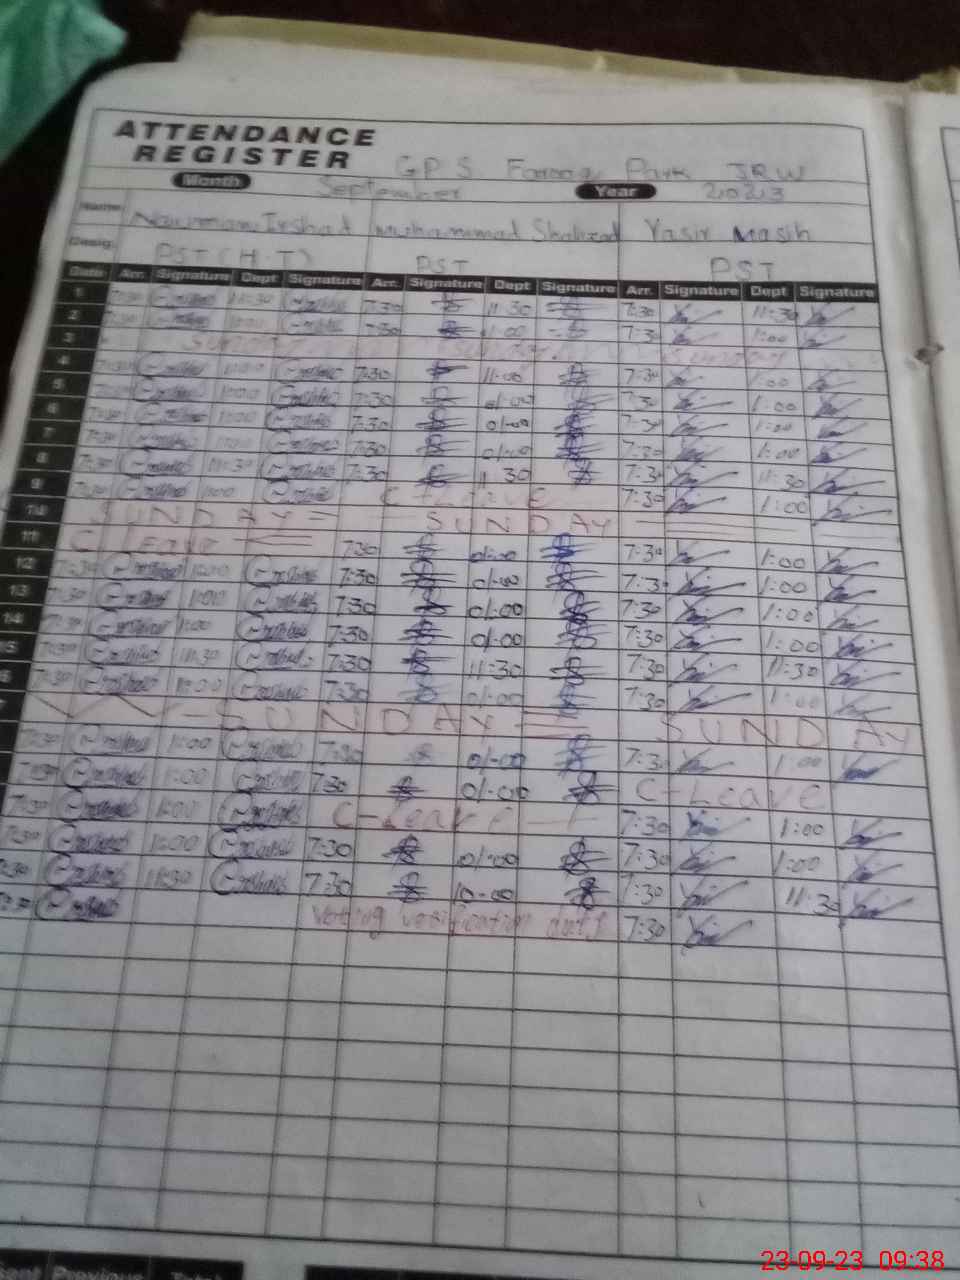 ATTENDANCE
REGISTER GPS Farooq Park JRW
Month September Year 2023
Name Nauman Irshad Muhammad Shahzad Yasir Masih
Desig. PST (H.T) PST PST
Date Arr. Signature Dept Signature Arr. Signature Dept Signature Arr. Signature Dept Signature
1 7:30 11:30 7:30 11:30 7:30 11:30
2 7:30 1:00 7:30 01:00 7:30 1:00
3 Sunday Sunday Sunday
4 7:30 1:00 7:30 11:00 7:30 1:00
5 7:30 1:00 7:30 01:00 7:30 1:00
6 7:30 1:00 7:30 01:00 7:30 1:00
7 7:30 1:00 7:30 01:00 7:30 1:00
8 7:30 11:30 7:30 11 30 7:30 11:30
9 7:30 1:00 C-Leave 7:30 1:00
10 SUNDAY SUNDAY
11 C Leave 7:30 01:00 7:30 1:00
12 7:30 1:00 7:30 01:00 7:30 1:00
13 7:30 1:00 7:30 01:00 7:30 1:00
14 7:30 1:00 7:30 01:00 7:30 1:00
15 7:30 11:30 7:30 11:30 7:30 11:30
6 7:30 11:00 7:30 01:00 7:30 1:00
7 SUNDAY SUNDAY
7:30 1:00 7:30 01:00 7:30 1:00
7:30 1:00 7:30 01:00 C-Leave
7:30 1:00 C-Leave 7:30 1:00
7:30 1:00 7:30 01:00 7:30 1:00
7:30 11:30 7:30 10:00 7:30 11:30
7:30 Voting verification duty 7:30
sent Previous Total
23-09-23 09:38